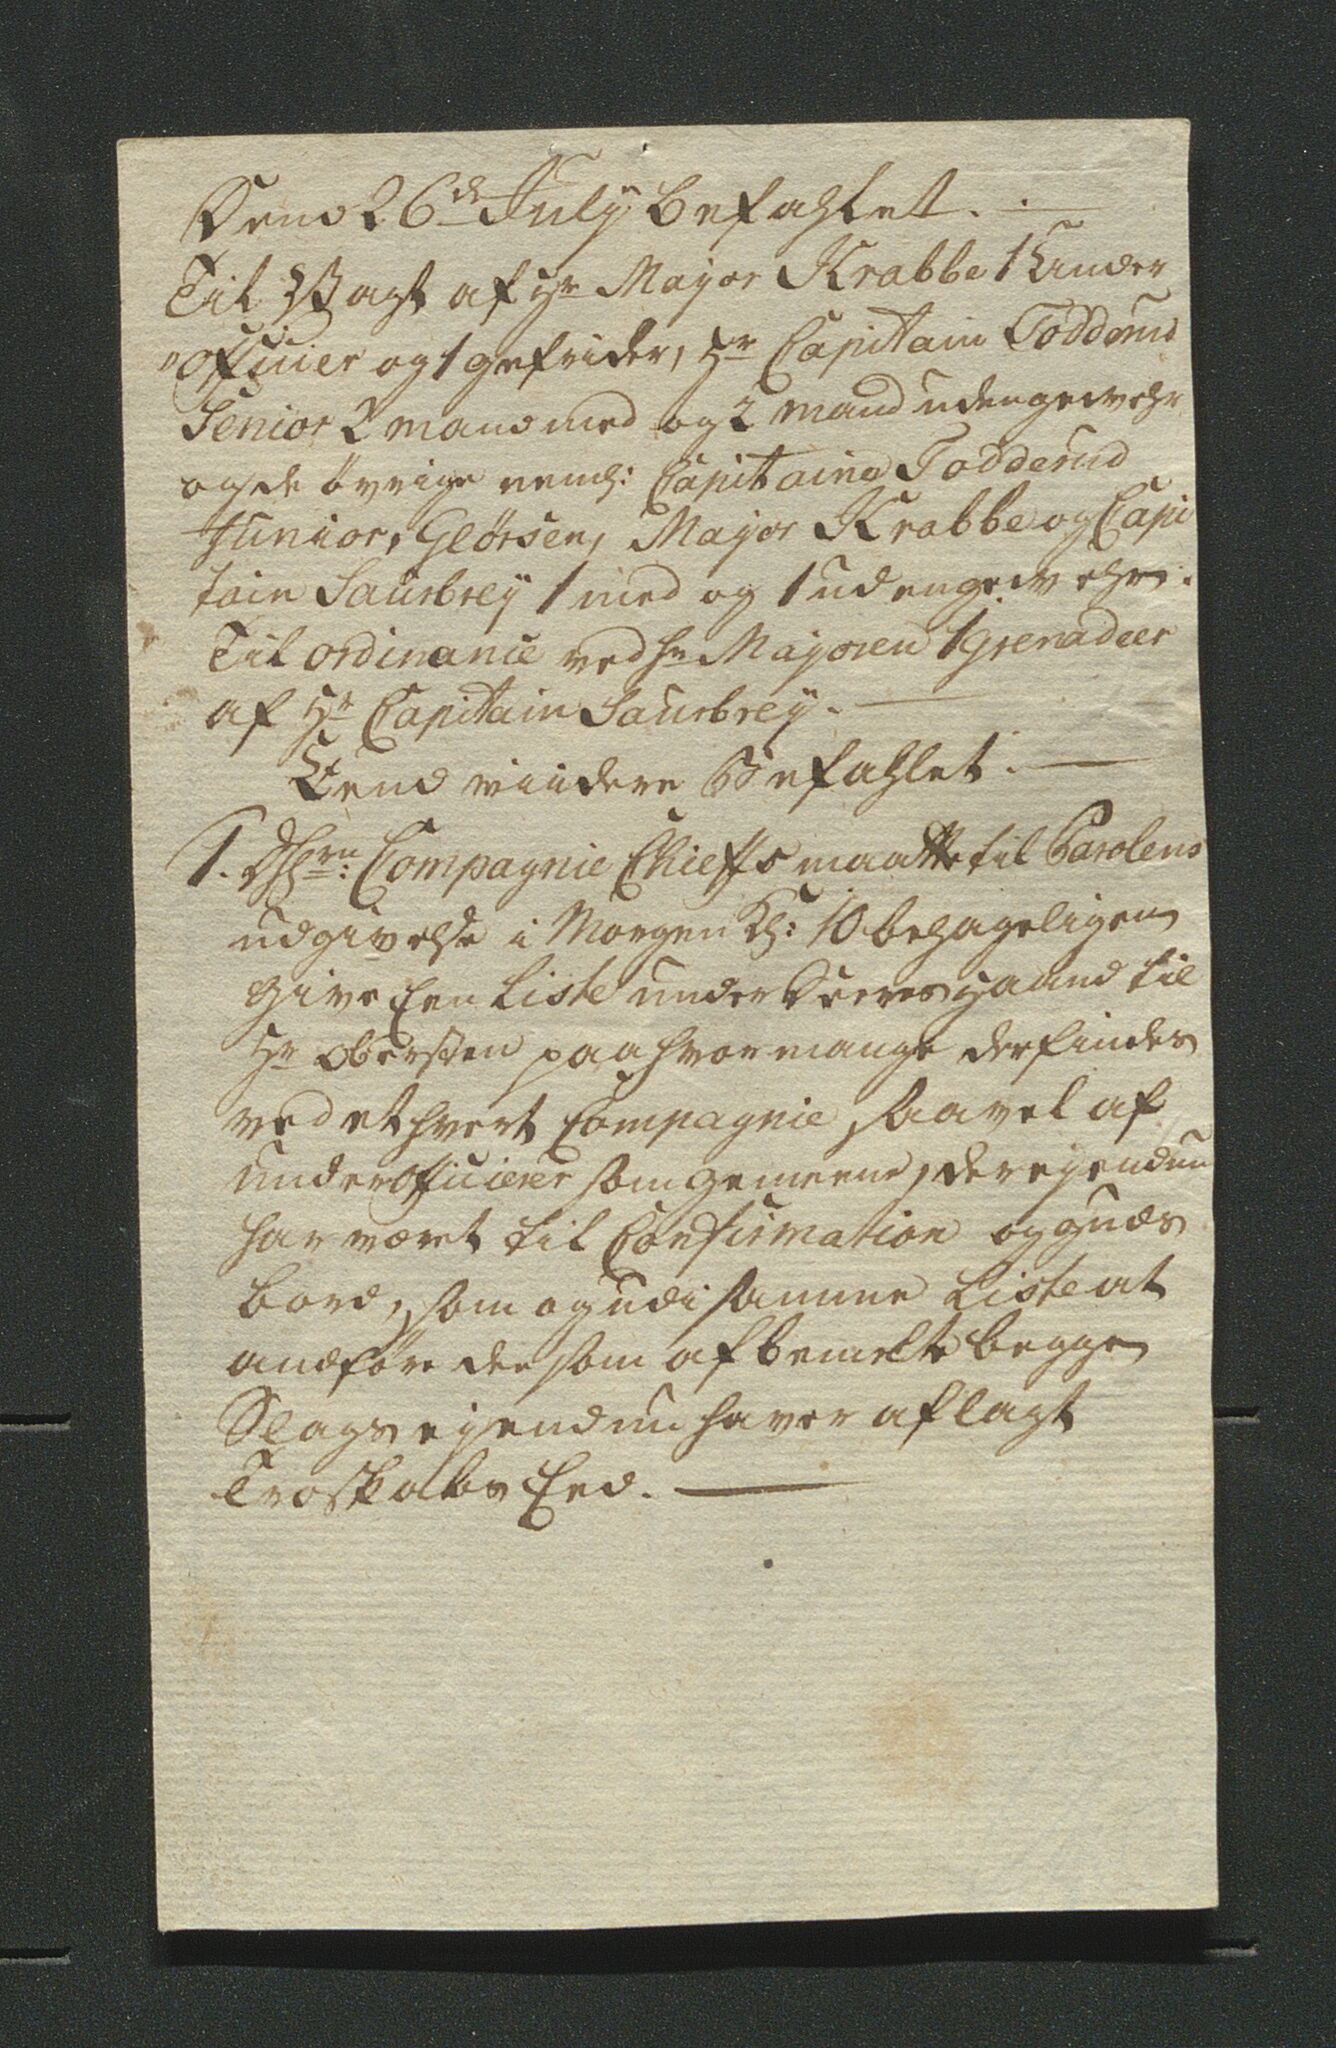 Dend 26de July befahlet. —
Til Wagt af Hr Mayor Krabbe 1 Under
officier og 1 gefrider, Hr Capitain Todderud
Senior 2 mand med og 2 mand uden gewehr
og de övrige neml: Capitaine Todderud
Junior, Glörsen, Mayor Krabbe og Capi
tain Saurbrey 1 med og 1 uden gewehr.
Til ordinance ved hr Majoren 1 Grenadeer
af Hr Capitain Saurbrey. —
End viidere Befahlet. —
1. Dhrrn: Compagnie Chieffs maatte til Parolens
udgivelse i Morgen Kl: 10 behageligen
give Een Liste under Deres Haand til
Hr Obersten paa hvor mange der findes
ved et hvert Compagnie, saavel af
underofficierer som gemeene, der ej endnu
har været til Confirmation og Guds
bord, som og udi samme Liste at
andføre de som af bemelte begge
Slags ej endnu haver aflagt
Troskabs Eed. —